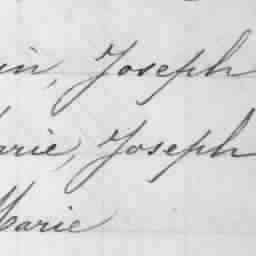 in, Joseph
arie, Joseph
Marie